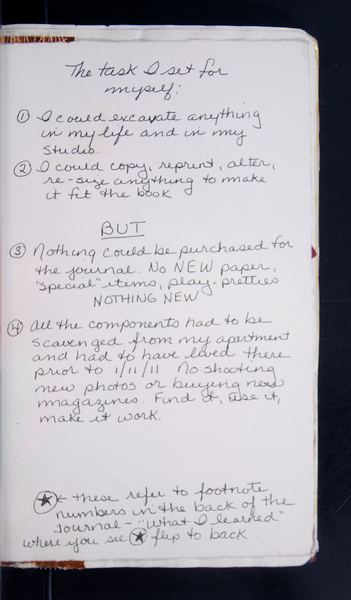 The task I set for
myself:
① I could excavate anything
in my life and in my
studio.
② I could copy, reprint, alter,
re-size anything to make
it fit the book
BUT
③ Nothing could be purchased for
the journal. No NEW paper,
"special" items, play-pretties
NOTHING NEW
④ All the components had to be
scavenged from my apartment
and had to have lived there
prior to 1/11/11 No shooting
new photos or buying new
magazines. Find it, use it,
make it work.
★ ← these refer to footnote
numbers in the back of the
Journal - "what I learned"
where you see ★ flip to back